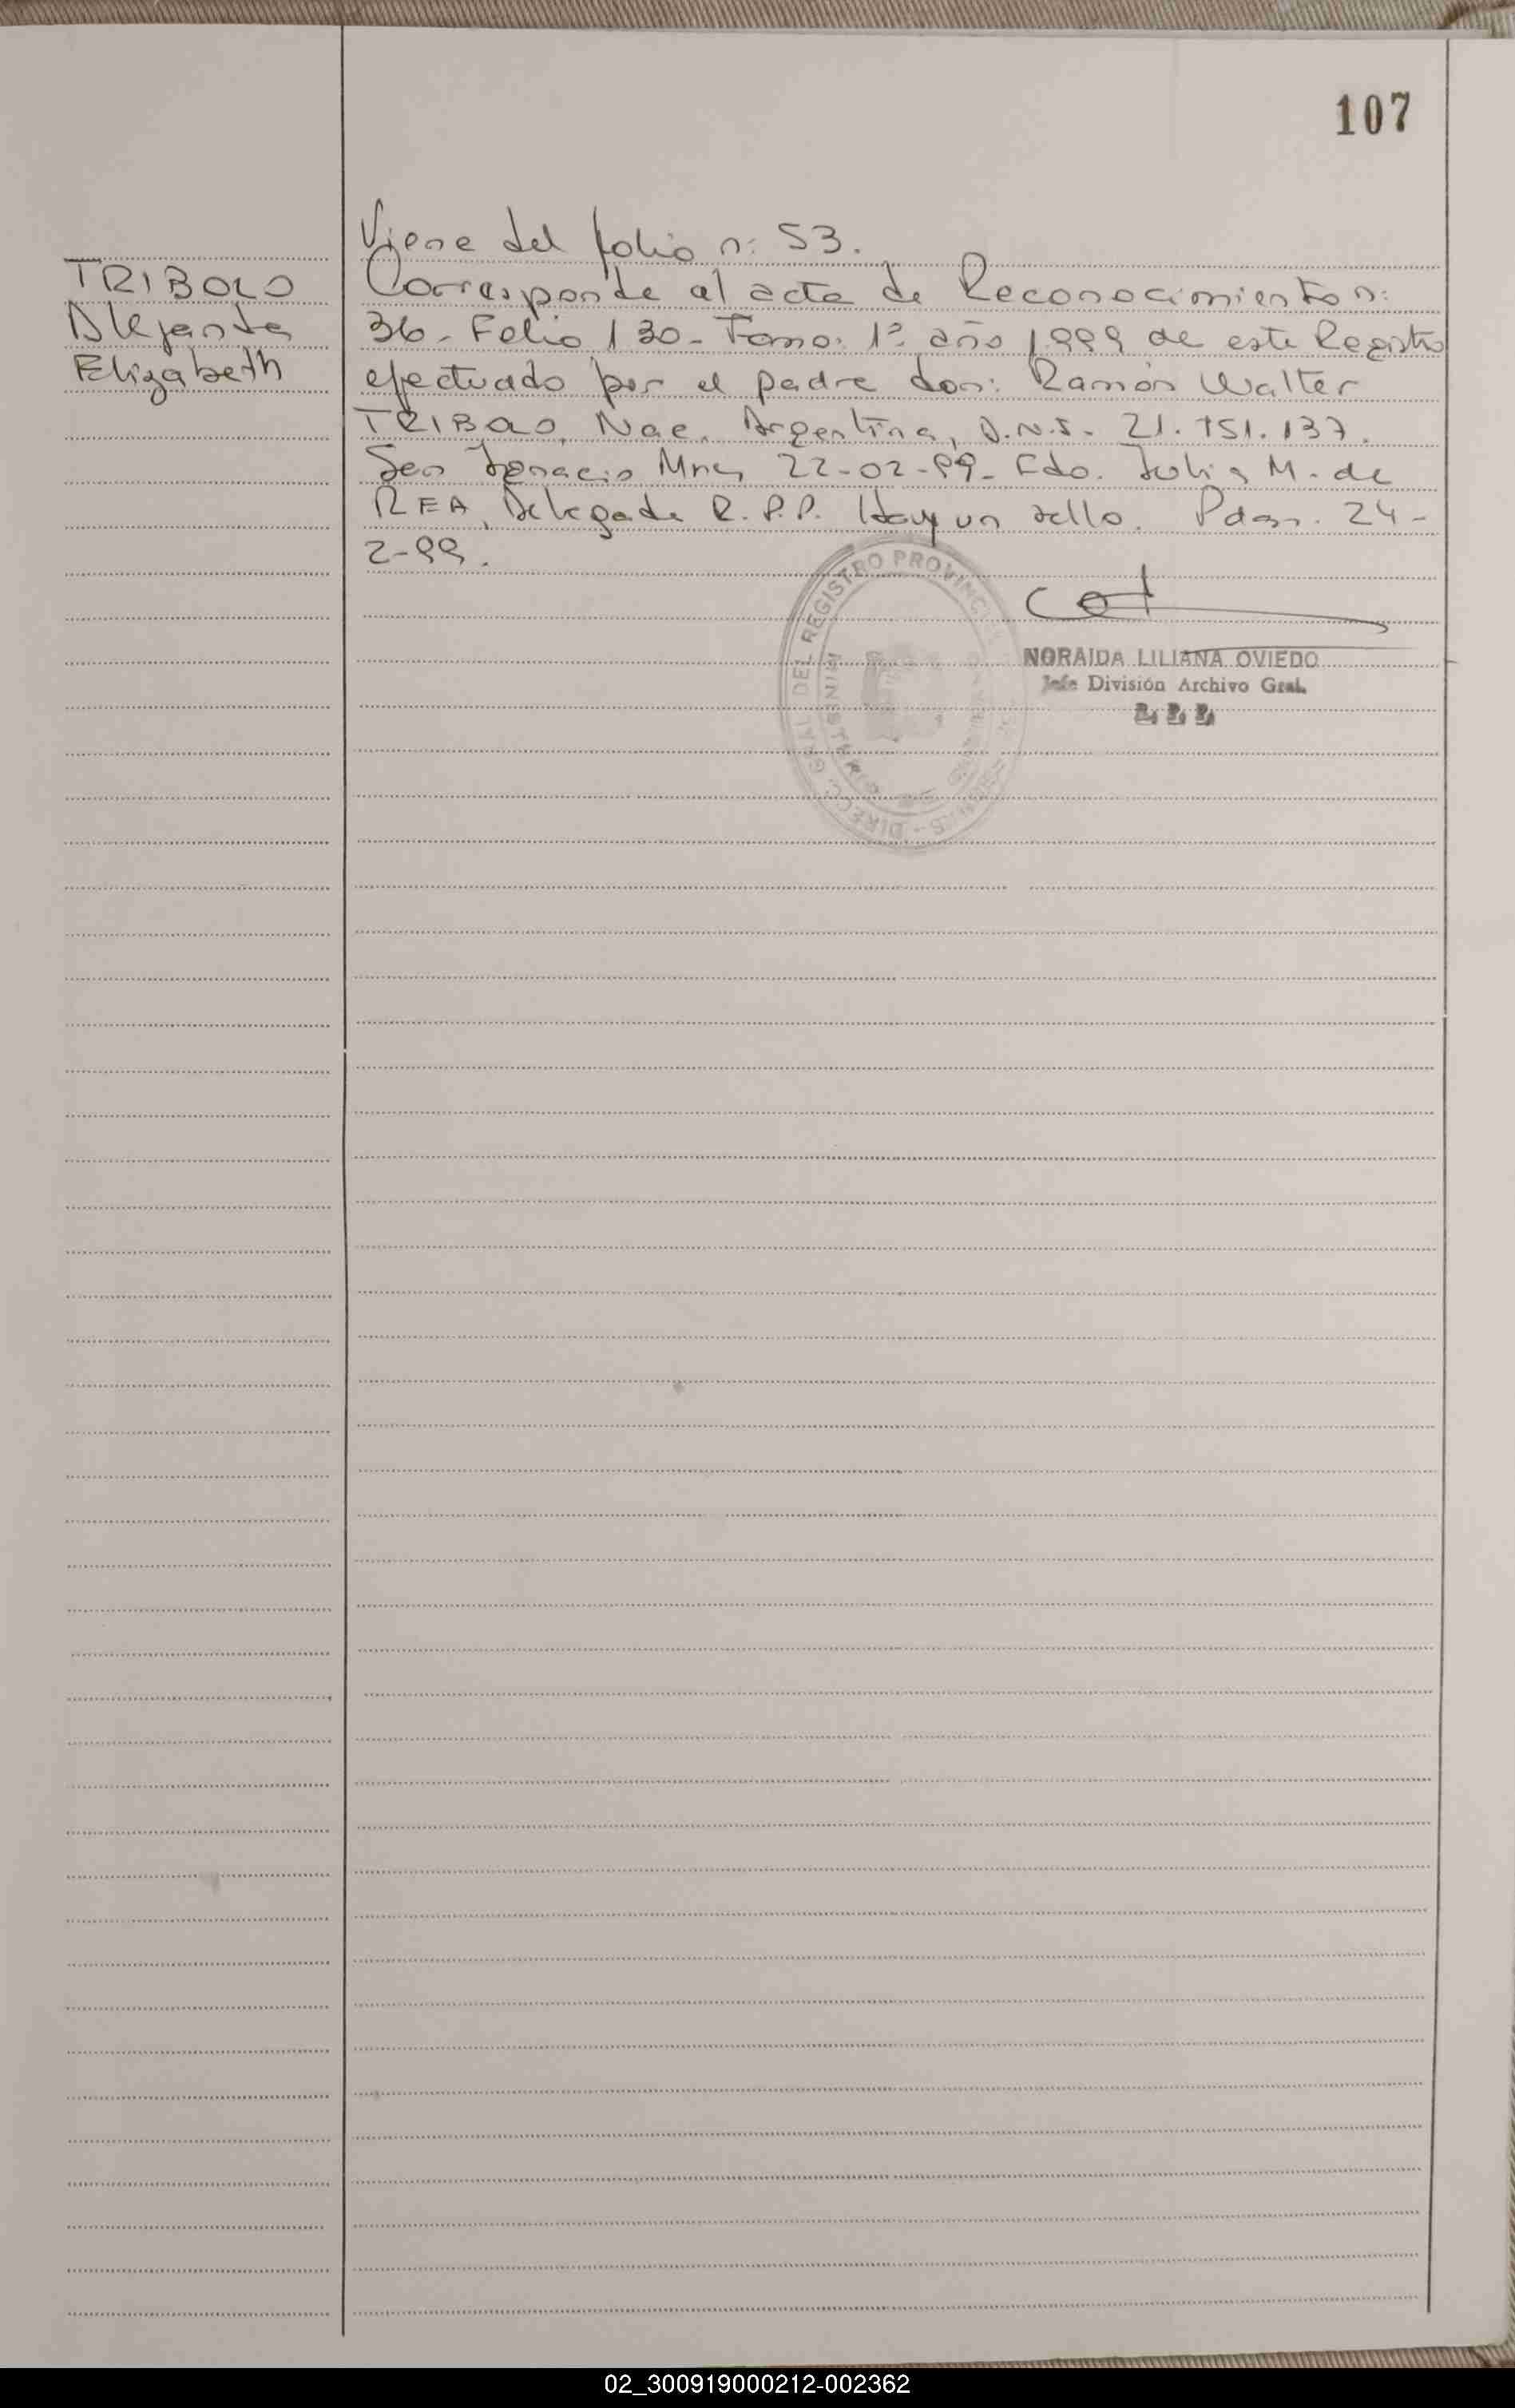 107
TRIBOLO
Alejandra
Elizabeth
Viene del folio n: 53.
Corresponde al acta de Reconocimiento n:
36 - Folio 130 - Tomo: 1º año 1999 de este Registro
efectuado por el padre don: Ramón Walter
TRIBOLO, Nac. Argentina, D.N.I. 21.751.137.
San Ignacio Mnes 22-02-99 - Fdo. Julia M. de
REA, Delegada R.P.P. Hay un sello. Pdas. 24-
2-99.
DIRECC. GRAL. DEL REGISTRO PROVINCIAL
MINISTERIO
NORAIDA LILIANA OVIEDO
Jefe División Archivo Gral.
02_300919000212-002362